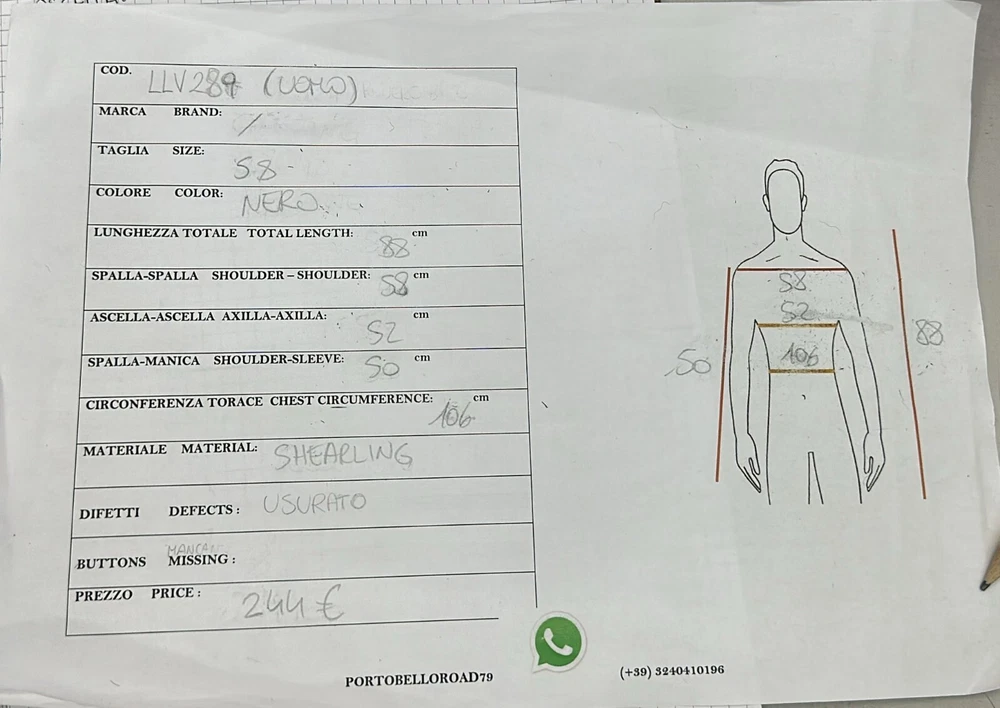 COD. LLV289 (UOMO)
MARCA BRAND: /
TAGLIA SIZE: 58 -
COLORE COLOR: NERO
LUNGHEZZA TOTALE TOTAL LENGTH: 88 cm
SPALLA-SPALLA SHOULDER – SHOULDER: 58 cm
ASCELLA-ASCELLA AXILLA-AXILLA: 52 cm
SPALLA-MANICA SHOULDER-SLEEVE: 50 cm
CIRCONFERENZA TORACE CHEST CIRCUMFERENCE: 106 cm
MATERIALE MATERIAL: SHEARLING
DIFETTI DEFECTS: USURATO
BUTTONS MISSING:
PREZZO PRICE: 244 €
58
52
106
50
88
PORTOBELLOROAD79
(+39) 3240410196